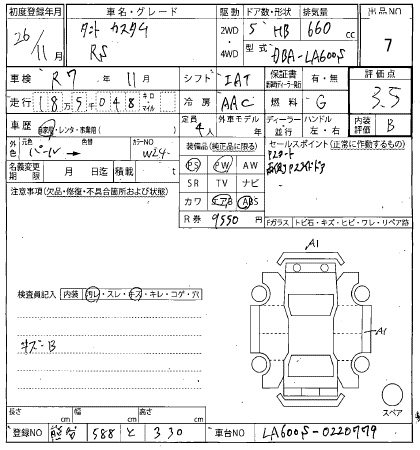 初度登録年月 車名・グレード 駆動 ドア数・形状 排気量 出品NO
26/11月 タント カスタム RS 2WD 4WD 5 HB 660 cc 7
型式 DBA-LA600S
車検 R7 年 11 月 シフト IAT 保証書 有・無 評価点
走行 18万5千048 キロ マイル 冷房 AAC 燃料 G 3.5
車歴 自家用・レンタ・事業用( ) 定員 4人 外車モデル年 ディーラー 並行 ハンドル 左・右 内装評価 B
外色 元色 パール 色替 カラーNO W24 装備品(純正品に限る) セールスポイント(正常に動作するもの)
名義変更期限 月 日迄 積載 t PS PW AW Pスタート
注意事項(欠品・修復・不具合箇所および状態) SR TV ナビ
カワ エアB ABS
R券 9550円 Fガラス トビ石・キズ・ヒビ・ワレ・リペア跡
A1
検査員記入 内装 汚レ・スレ・キズ・キレ・コゲ・穴
A1
キズ-B
スペア
長さ cm 幅 cm 高さ cm
登録NO 熊谷 588 と 330 車台NO LA600S-0220779